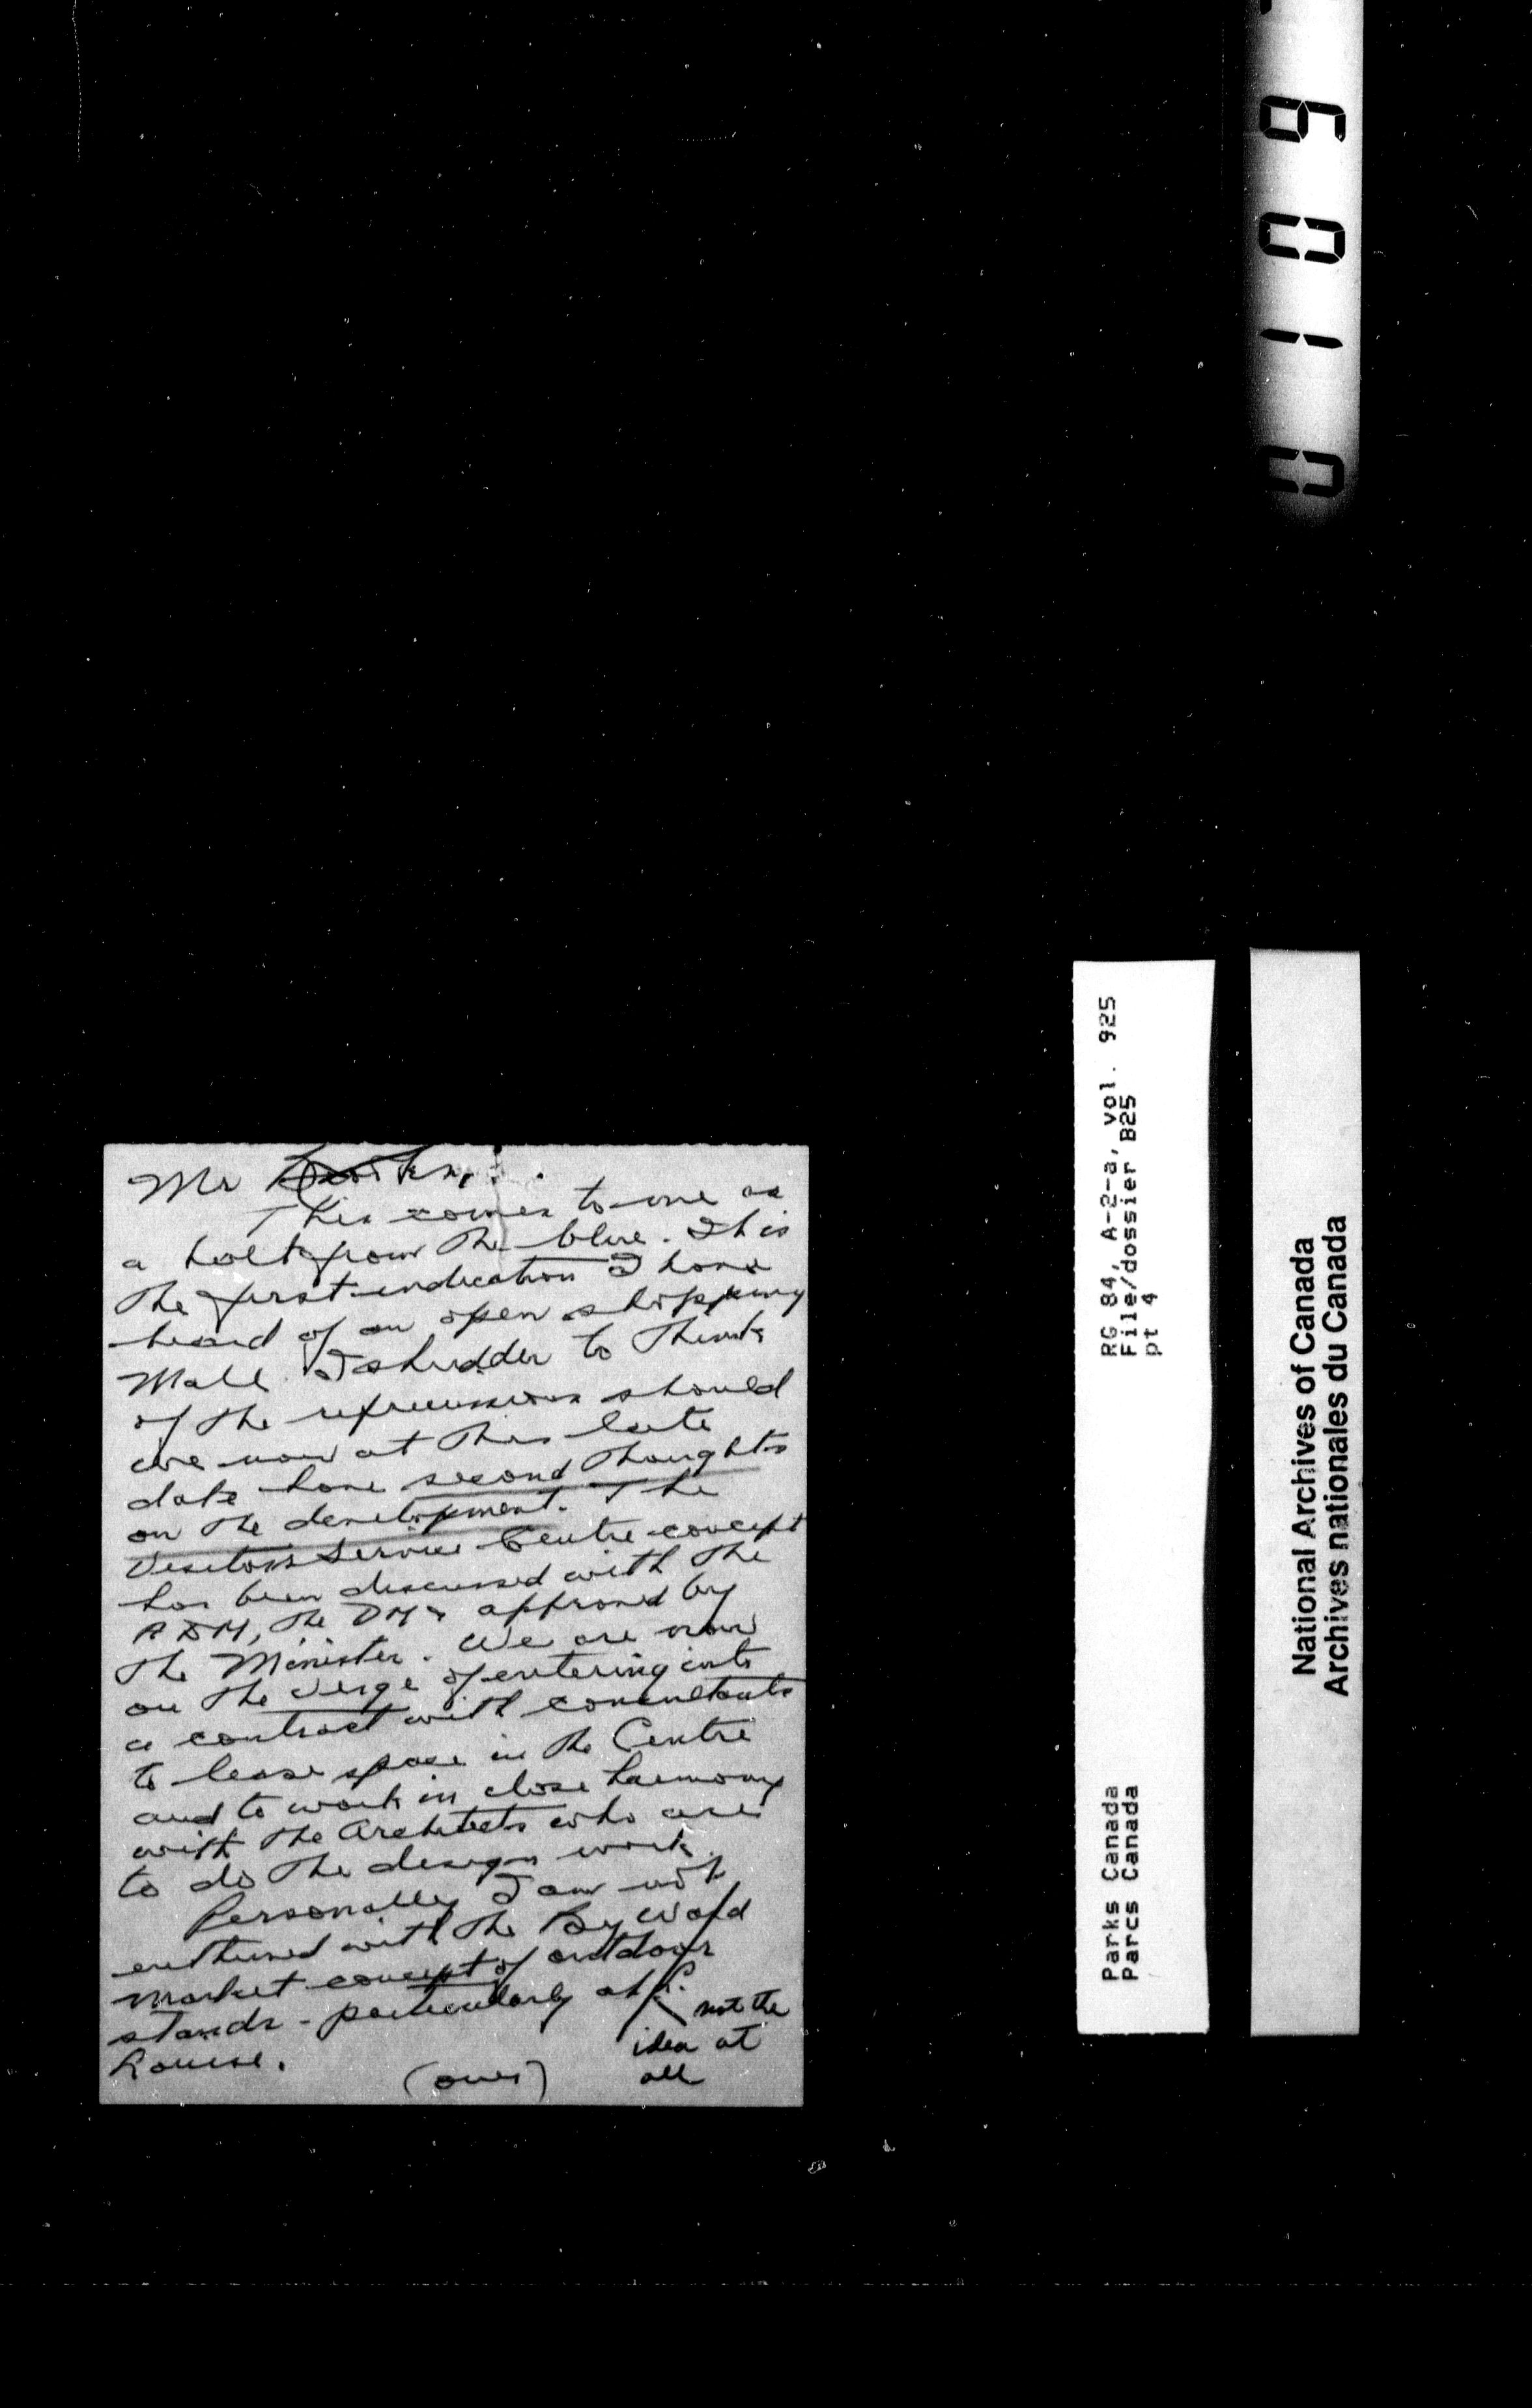 Mr
This comes to me as
a bolt from the blue. It is
the first indication I have
heard of an open shopping
Mall. I shudder to think
of the repercussions should
we now at this late
date have second thoughts
on the development. The
Visitors Service Centre concept
has been discussed with the
ADM, the DM & approved by
the Minister. We are now
on the verge of entering into
a contract with consultants
to lease space in the Centre
and to work in close harmony
with the Architects who are
to do the design work.
Personally I am not
enthused with the By Ward
Market concept of outdoor
stands - particularly at L.
Louise.
not the
idea at
all
(over)
RG 84, A-2-a, vol. 925
File/dossier B25
pt 4
Parks Canada
Parcs Canada
National Archives of Canada
Archives nationales du Canada
0109